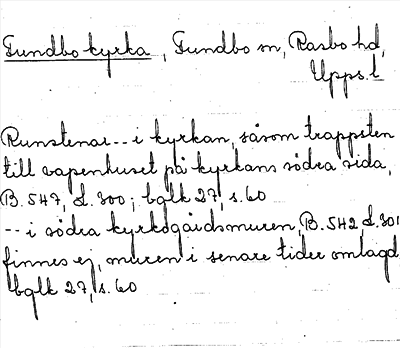 Funbo kyrka, Funbo sn, Rasbo hd,
Upps. l
Runstenar -- i kyrkan, såsom trappsten
till vapenhuset på kyrkans södra sida,
B. 547, L. 300; bglk 27, s. 60
-- i södra kyrkogårdsmuren, B. 542, L. 301
finnes ej, muren i senare tider omlagd,
bglk 27, s. 60